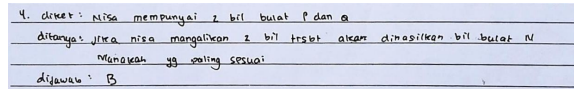 4. diket : Nisa mempunyai 2 bil bulat P dan Q
ditanya : Jika nisa mangalikan 2 bil trsbt akan dihasilkan bil bulat N
Manakah yg paling sesuai
dijawab : B